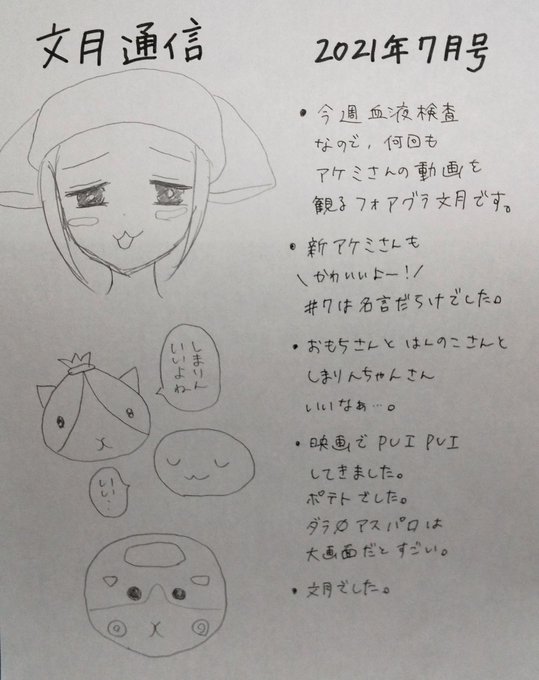 文月通信
2021年7月号
・今週血液検査
なので、何回も
アケミさんの動画を
観るフォアグラ文月です。
・新アケミさんも
\かわいいよー！/
#7は名言だらけでした。
・おもちさんとはんのこさんと
しまりんちゃんさん
いいなぁ…。
・映画でPUI PUI
してきました。
ポテトでした。
ダラ∅アスパロは
大画面だとすごい。
・文月でした。
しまりん
いいよね
いい…